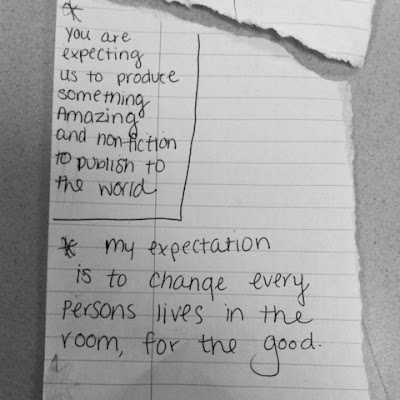 * you are
expecting
us to produce
something
Amazing
and nonfiction
to publish to
the world
* my expectation
is to change every
persons lives in the
room, for the good.